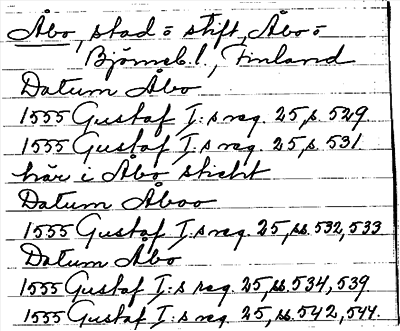 Åbo, stad o stift, Åbo o
Björneb.l., Finland
Datum Åbo
1555 Gustaf I:s reg. 25, s. 529
1555 Gustaf I:s reg. 25, s. 531
här i Åbo sticht
Datum Åboo
1555 Gustaf I:s reg. 25, ss. 532, 533
Datum Åbo
1555 Gustaf I:s reg. 25, ss. 534, 539
1555 Gustaf I:s reg. 25, ss. 542, 544.